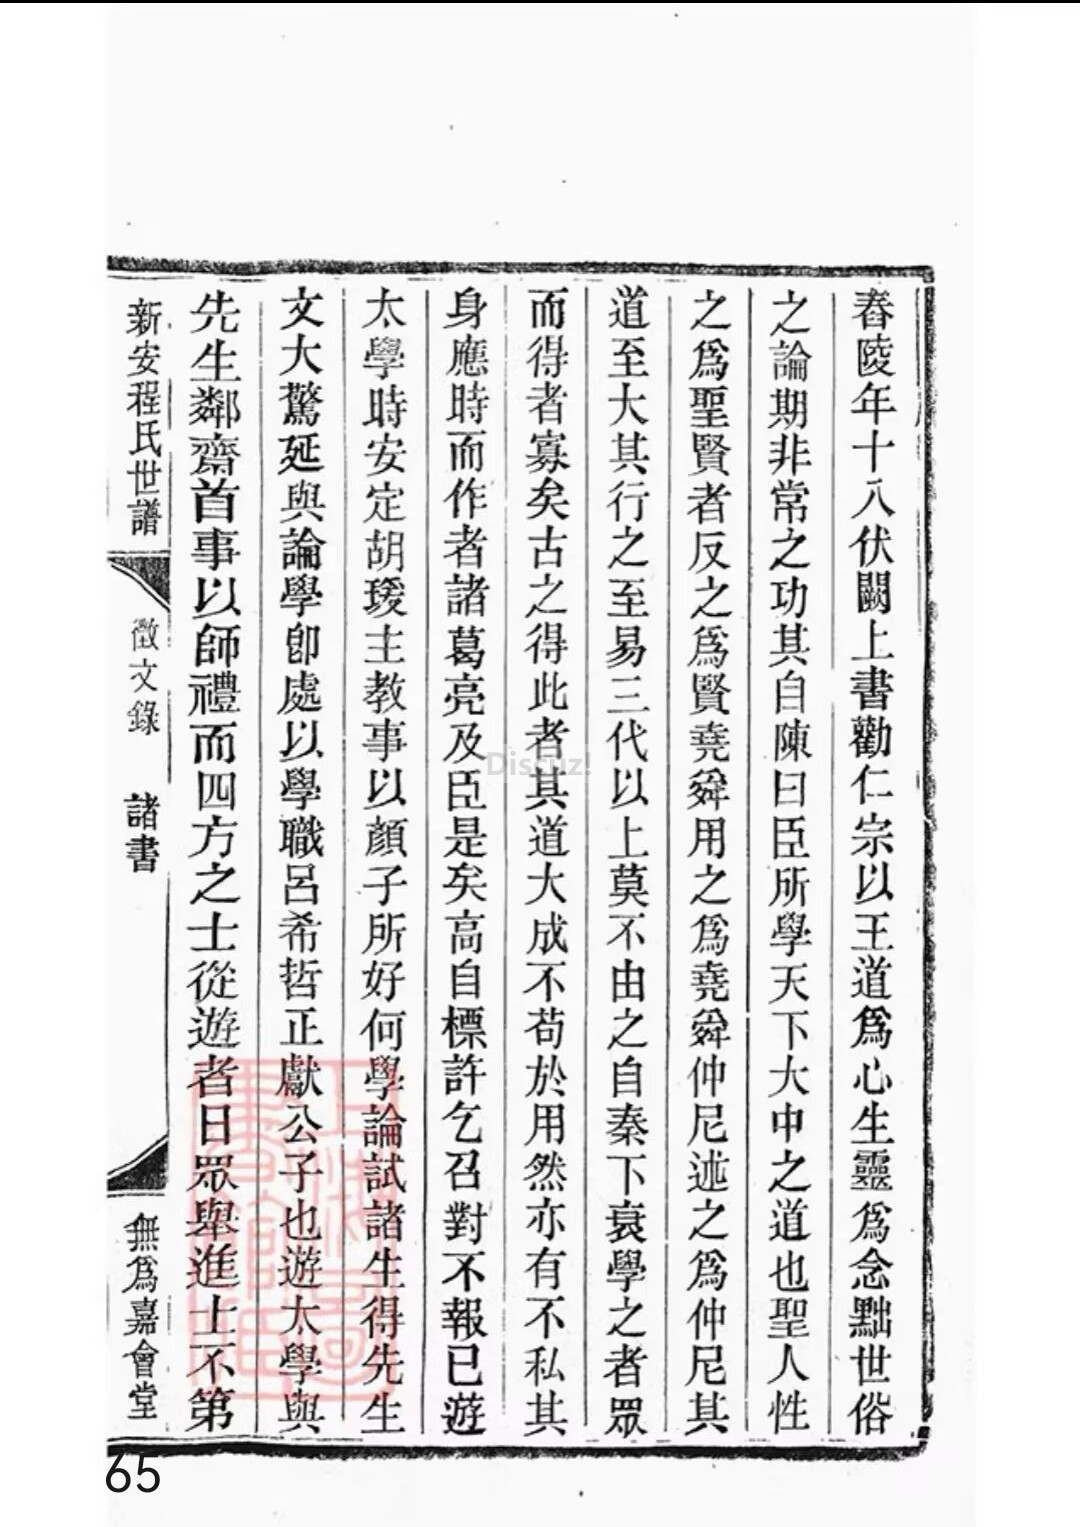 舂陵年十八伏闕上書勸仁宗以王道爲心生靈爲念黜世俗
之論期非常之功其自陳曰臣所學天下大中之道也聖人性
之爲聖賢者反之爲賢堯舜用之爲堯舜仲尼述之爲仲尼其
道至大其行之至易三代以上莫不由之自秦下衰學之者眾
而得者寡矣古之得此者其道大成不苟於用然亦有不私其
身應時而作者諸葛亮及臣是矣高自標許乞召對不報已遊
太學時安定胡瑗主教事以顏子所好何學論試諸生得先生
文大驚延與論學卽處以學職呂希哲正獻公子也遊太學與
先生鄰齋首事以師禮而四方之士從遊者日眾舉進士不第
新安程氏世譜 徵文錄 諸書 無爲嘉會堂
Discuz!
65